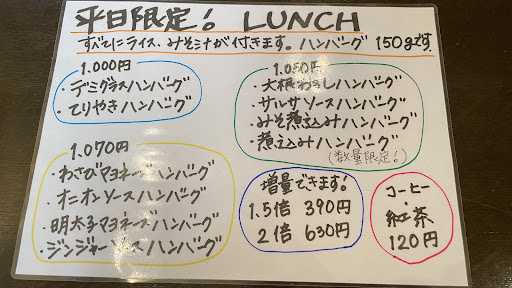 平日限定! LUNCH
すべてにライス、みそ汁が付きます。ハンバーグ 150gです
1.000円
・デミグラスハンバーグ
・てりやきハンバーグ
1.050円
・大根おろしハンバーグ
・サルサソースハンバーグ
・みそ煮込みハンバーグ
・煮込みハンバーグ
(数量限定!)
1.070円
・わさびマヨネーズハンバーグ
・オニオンソースハンバーグ
・明太子マヨネーズハンバーグ
・ジンジャーソースハンバーグ
増量できます!
1.5倍 390円
2倍 630円
コーヒー
・
紅茶
120円